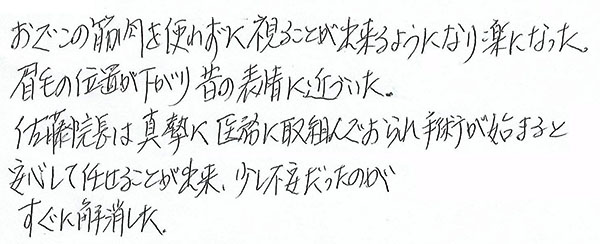 おでこの筋肉を使わずに視ることが出来るようになり楽になった。
眉毛の位置が下がり昔の表情に近づいた。
佐藤院長は真摯に医務に取組んでおられ手術が始まると
安心して任せることが出来、少し不安だったのが
すぐに解消した。